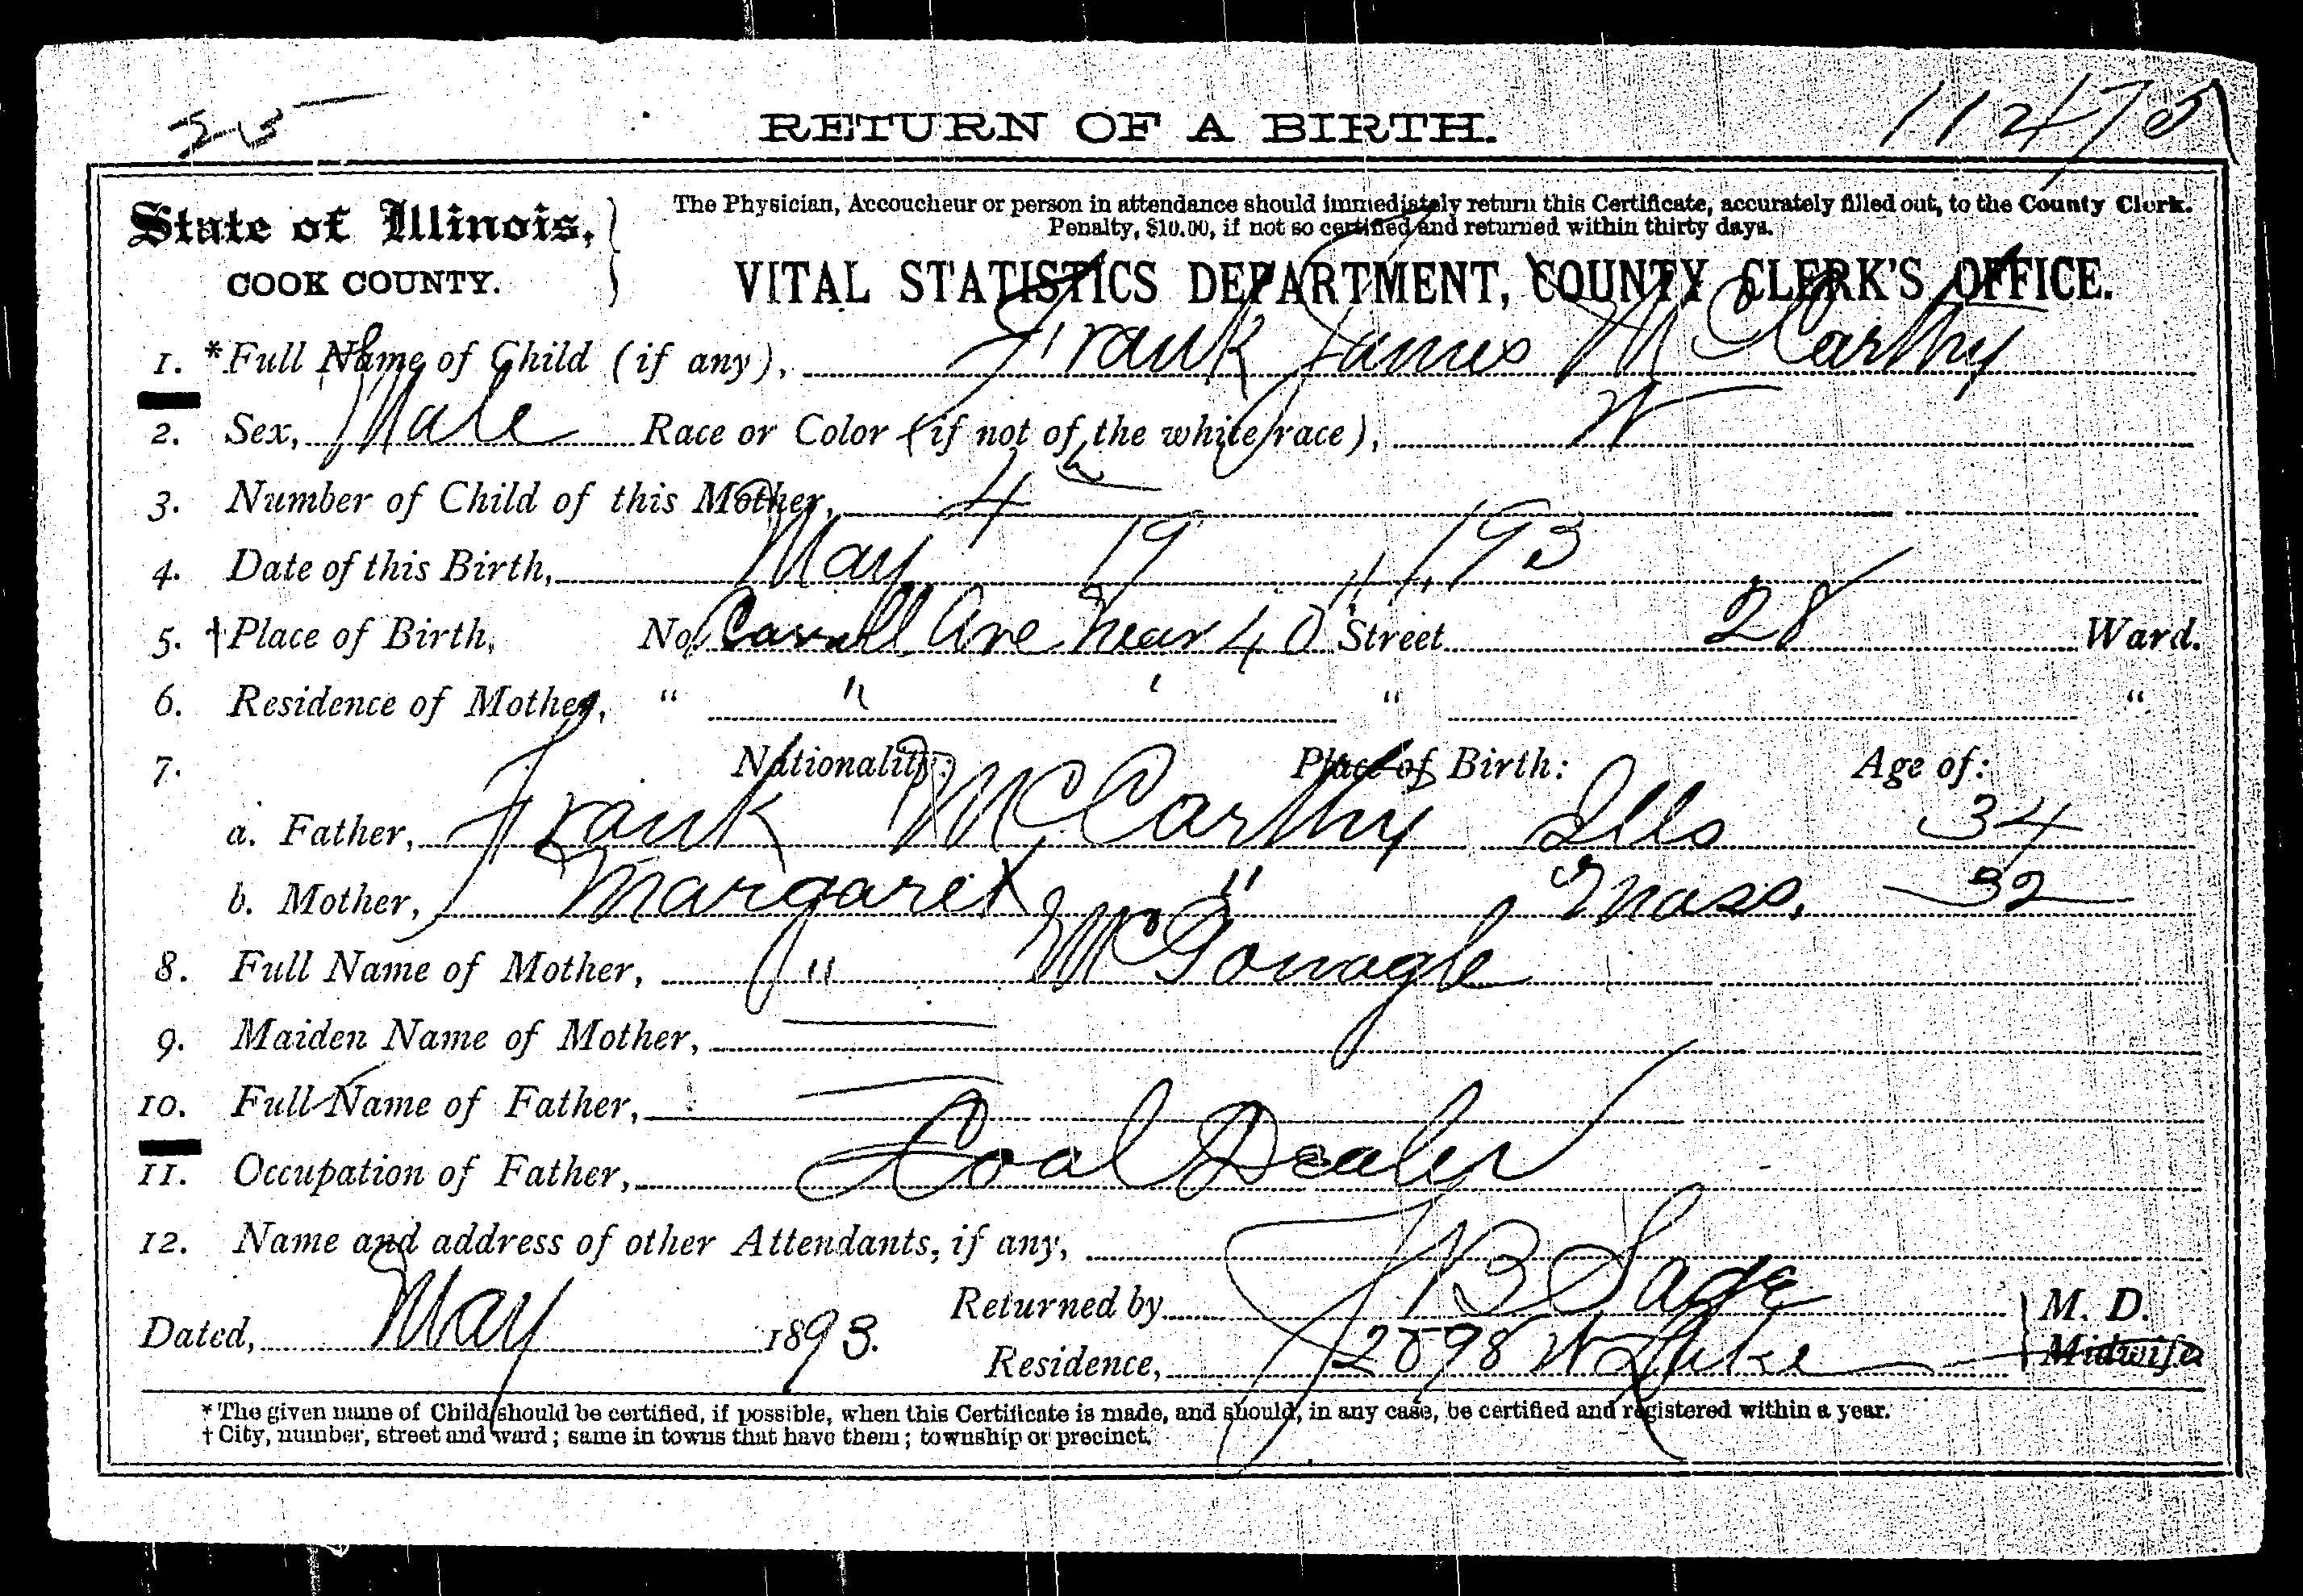 25 RETURN OF A BIRTH. 11475
State of Illinois, COOK COUNTY.
The Physician, Accoucheur or person in attendance should immediately return this Certificate, accurately filled out, to the County Clerk.
Penalty, $10.00, if not so certified and returned within thirty days.
VITAL STATISTICS DEPARTMENT, COUNTY CLERK'S OFFICE.
1. *Full Name of Child (if any), Frank James McCarthy
2. Sex, Male Race or Color (if not of the white race), W
3. Number of Child of this Mother, 4
4. Date of this Birth, May 19 193
5. †Place of Birth, No. Carroll Ave near 40 Street 28 Ward.
6. Residence of Mother, " " ' " "
7. Nationality: Place of Birth: Age of:
a. Father, Frank McCarthy Ills 34
b. Mother, Margaret " Mass. 32
8. Full Name of Mother, " McGonagle
9. Maiden Name of Mother,
10. Full Name of Father,
11. Occupation of Father, Coal Dealer
12. Name and address of other Attendants, if any,
Returned by J B Sage M. D.
Dated, May 1893.
Residence, 2098 W Lake Midwife
* The given name of Child should be certified, if possible, when this Certificate is made, and should, in any case, be certified and registered within a year.
† City, number, street and ward; same in towns that have them; township or precinct.